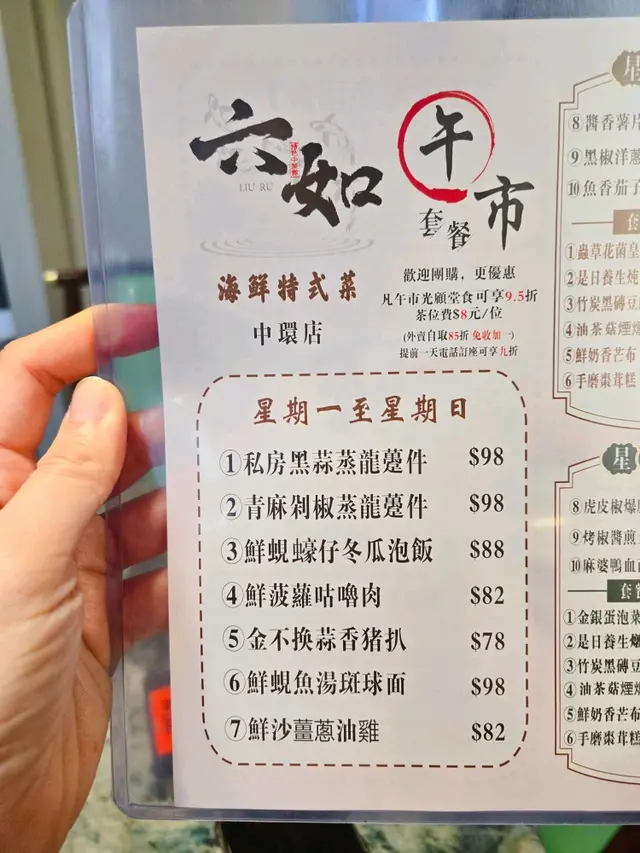 六如
LIU RU
海鮮特式菜
中環店
午市
套餐
歡迎團購，更優惠
凡午市光顧堂食可享9.5折
茶位費$8元/位
(外賣自取85折 免收加一)
提前一天電話訂座可享九折
星期一至星期日
①私房黑蒜蒸龍躉件 $98
②青麻剁椒蒸龍躉件 $98
③鮮蜆蠔仔冬瓜泡飯 $88
④鮮菠蘿咕嚕肉 $82
⑤金不換蒜香豬扒 $78
⑥鮮蜆魚湯斑球面 $98
⑦鮮沙薑蔥油雞 $82
星
⑧醬香薯片
⑨黑椒洋蔥
⑩魚香茄子
套
①蟲草花菌皇
②是日養生炖
③竹炭黑磚豆
④油茶菇煙燻
⑤鮮奶香芒布
⑥手磨棗茸糕
星
⑧虎皮椒爆
⑨烤椒醬煎
⑩麻婆鴨血
套餐
①金銀蛋泡菜
②是日養生燉
③竹炭黑磚豆
④油茶菇煙燻
⑤鮮奶香芒布
⑥手磨棗茸糕